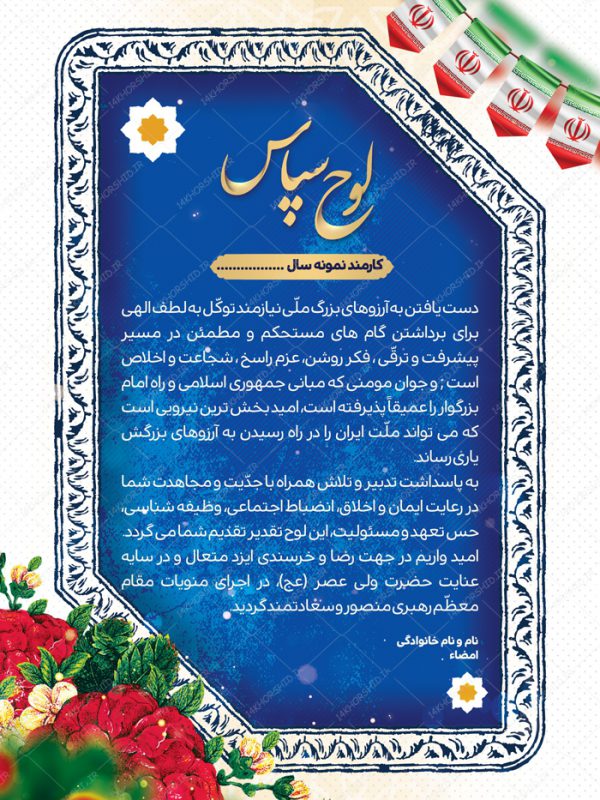 لوح سپاس
کارمند نمونه سال ..................
دست یافتن به آرزوهای بزرگ ملّی نیازمند توکّل به لطف الهی
برای برداشتن گام های مستحکم و مطمئن در مسیر
پیشرفت و ترقّی ، فکر روشن، عزم راسخ ، شجاعت و اخلاص
است ; و جوان مومنی که مبانی جمهوری اسلامی و راه امام
بزرگوار را عمیقاً پذیرفته است، امید بخش ترین نیرویی است
که می تواند ملّت ایران را در راه رسیدن به آرزوهای بزرگش
یاری رساند.
به پاسداشت تدبیر و تلاش همراه با جدّیت و مجاهدت شما
در رعایت ایمان و اخلاق، انضباط اجتماعی، وظیفه شناسی،
حس تعهد و مسئولیت، این لوح تقدیر تقدیم شما می گردد.
امید واریم در جهت رضا و خرسندی ایزد متعال و در سایه
عنایت حضرت ولی عصر (عج)، در اجرای منویات مقام
معظّم رهبری منصور و سعادتمند گردید.
نام و نام خانوادگی
امضاء
14KHORSHID.IR